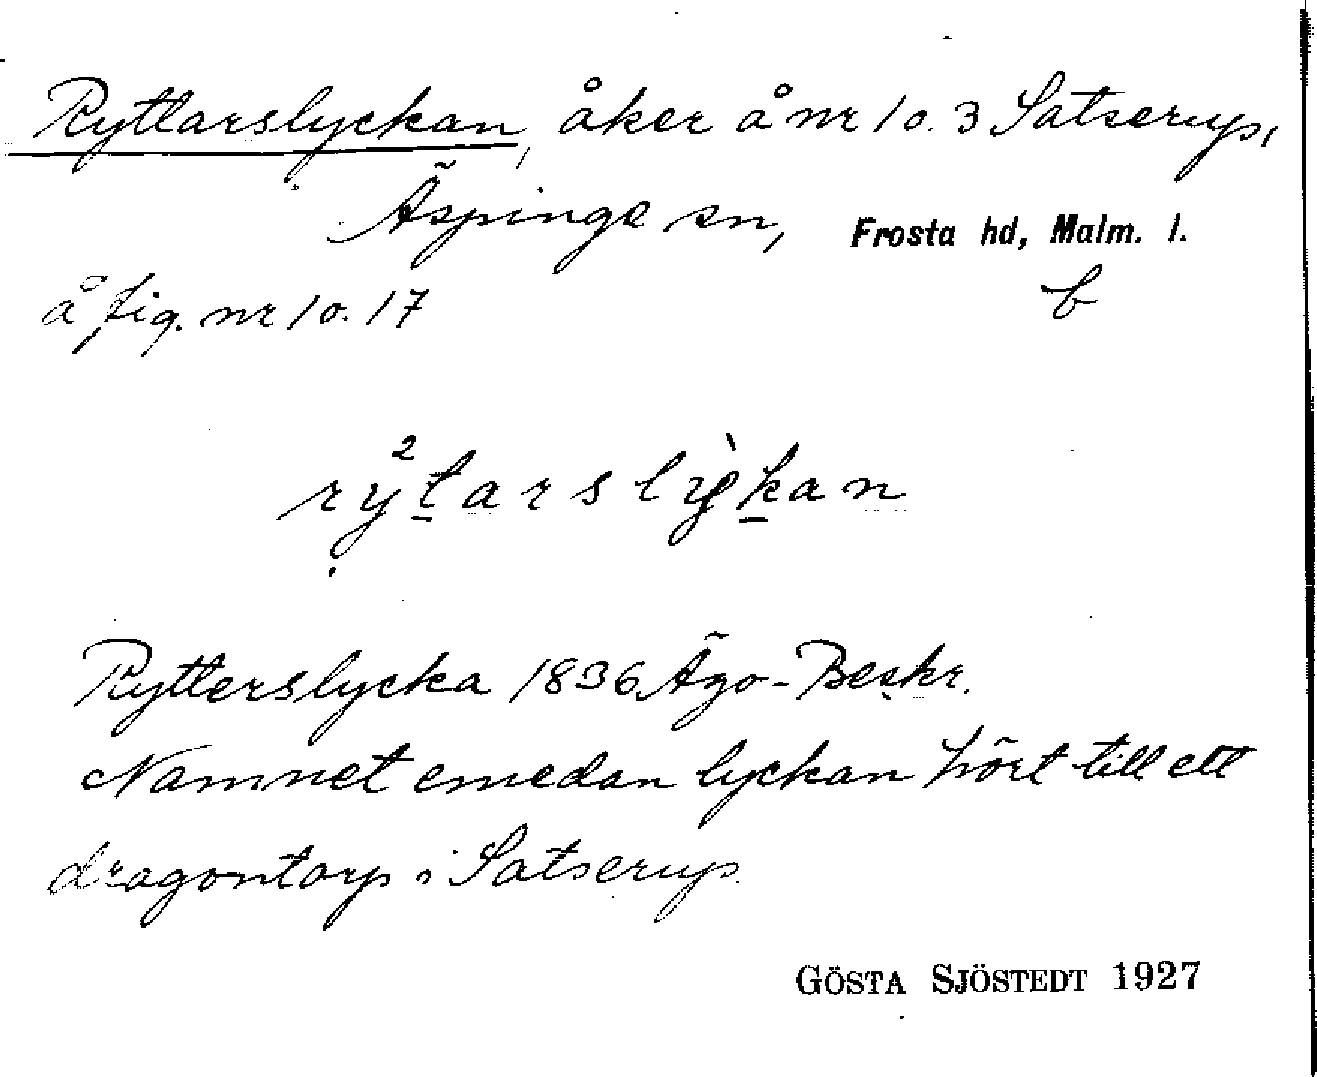 Ryttarslyckan, åker å nr 1 o. 3 Satserup,
Äspinge sn, Frosta hd, Malm. l.
å fig. nr 1 o. 17 b
rý²t̲arslỳk̲an
Rytterslycka 1836 Ägo-Beskr.
Namnet emedan lyckan hört till ett
dragontorp i Satserup.
GÖSTA SJÖSTEDT 1927